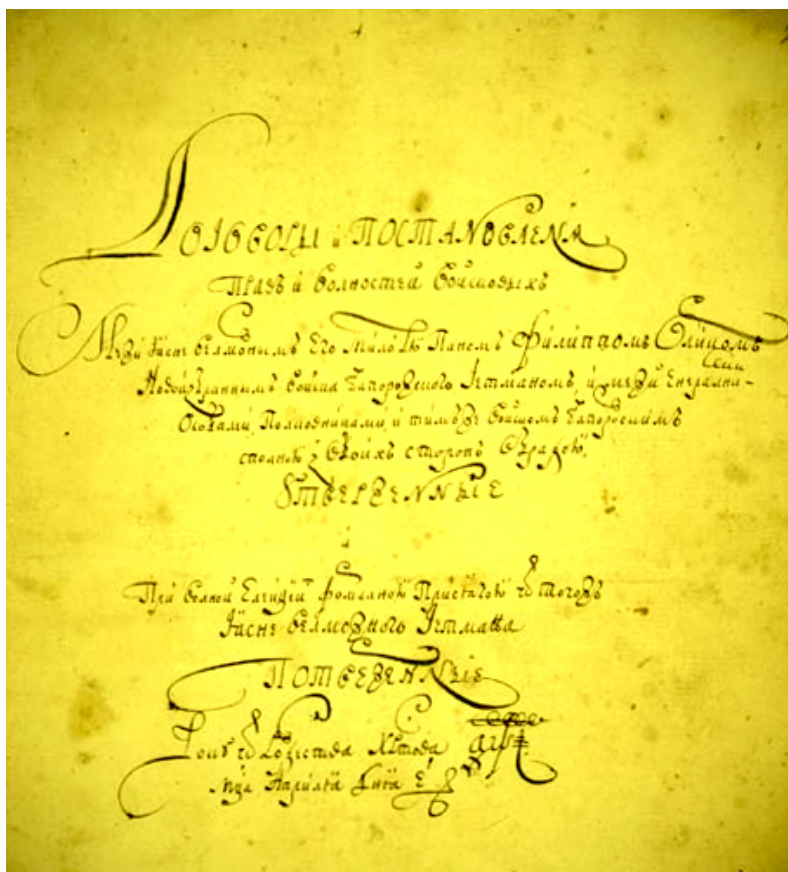 ДОГОВОРЫ и ПОСТАНОВЛЕНЯ
Правъ и волностей войсковыхъ
Межи Ясне велможнымъ Его Милостю Паномъ Филиппомъ Орликомъ
Новоизбраннымъ войска Запорожского Гетманомъ, и межи Енералними
Особами, Полковниками, и тимъ же войскомъ Запорозскимъ
сполною з обоихъ сторонъ обрадою,
УТВЕРЖЕННЫЕ
и
При волной Елекціи формалною Присягою ѿ тогожъ
Ясне велможного Гетмана
ПОТВЕРЖЕННЫЕ
Року ѿ Рождества
Мца Априля дня е